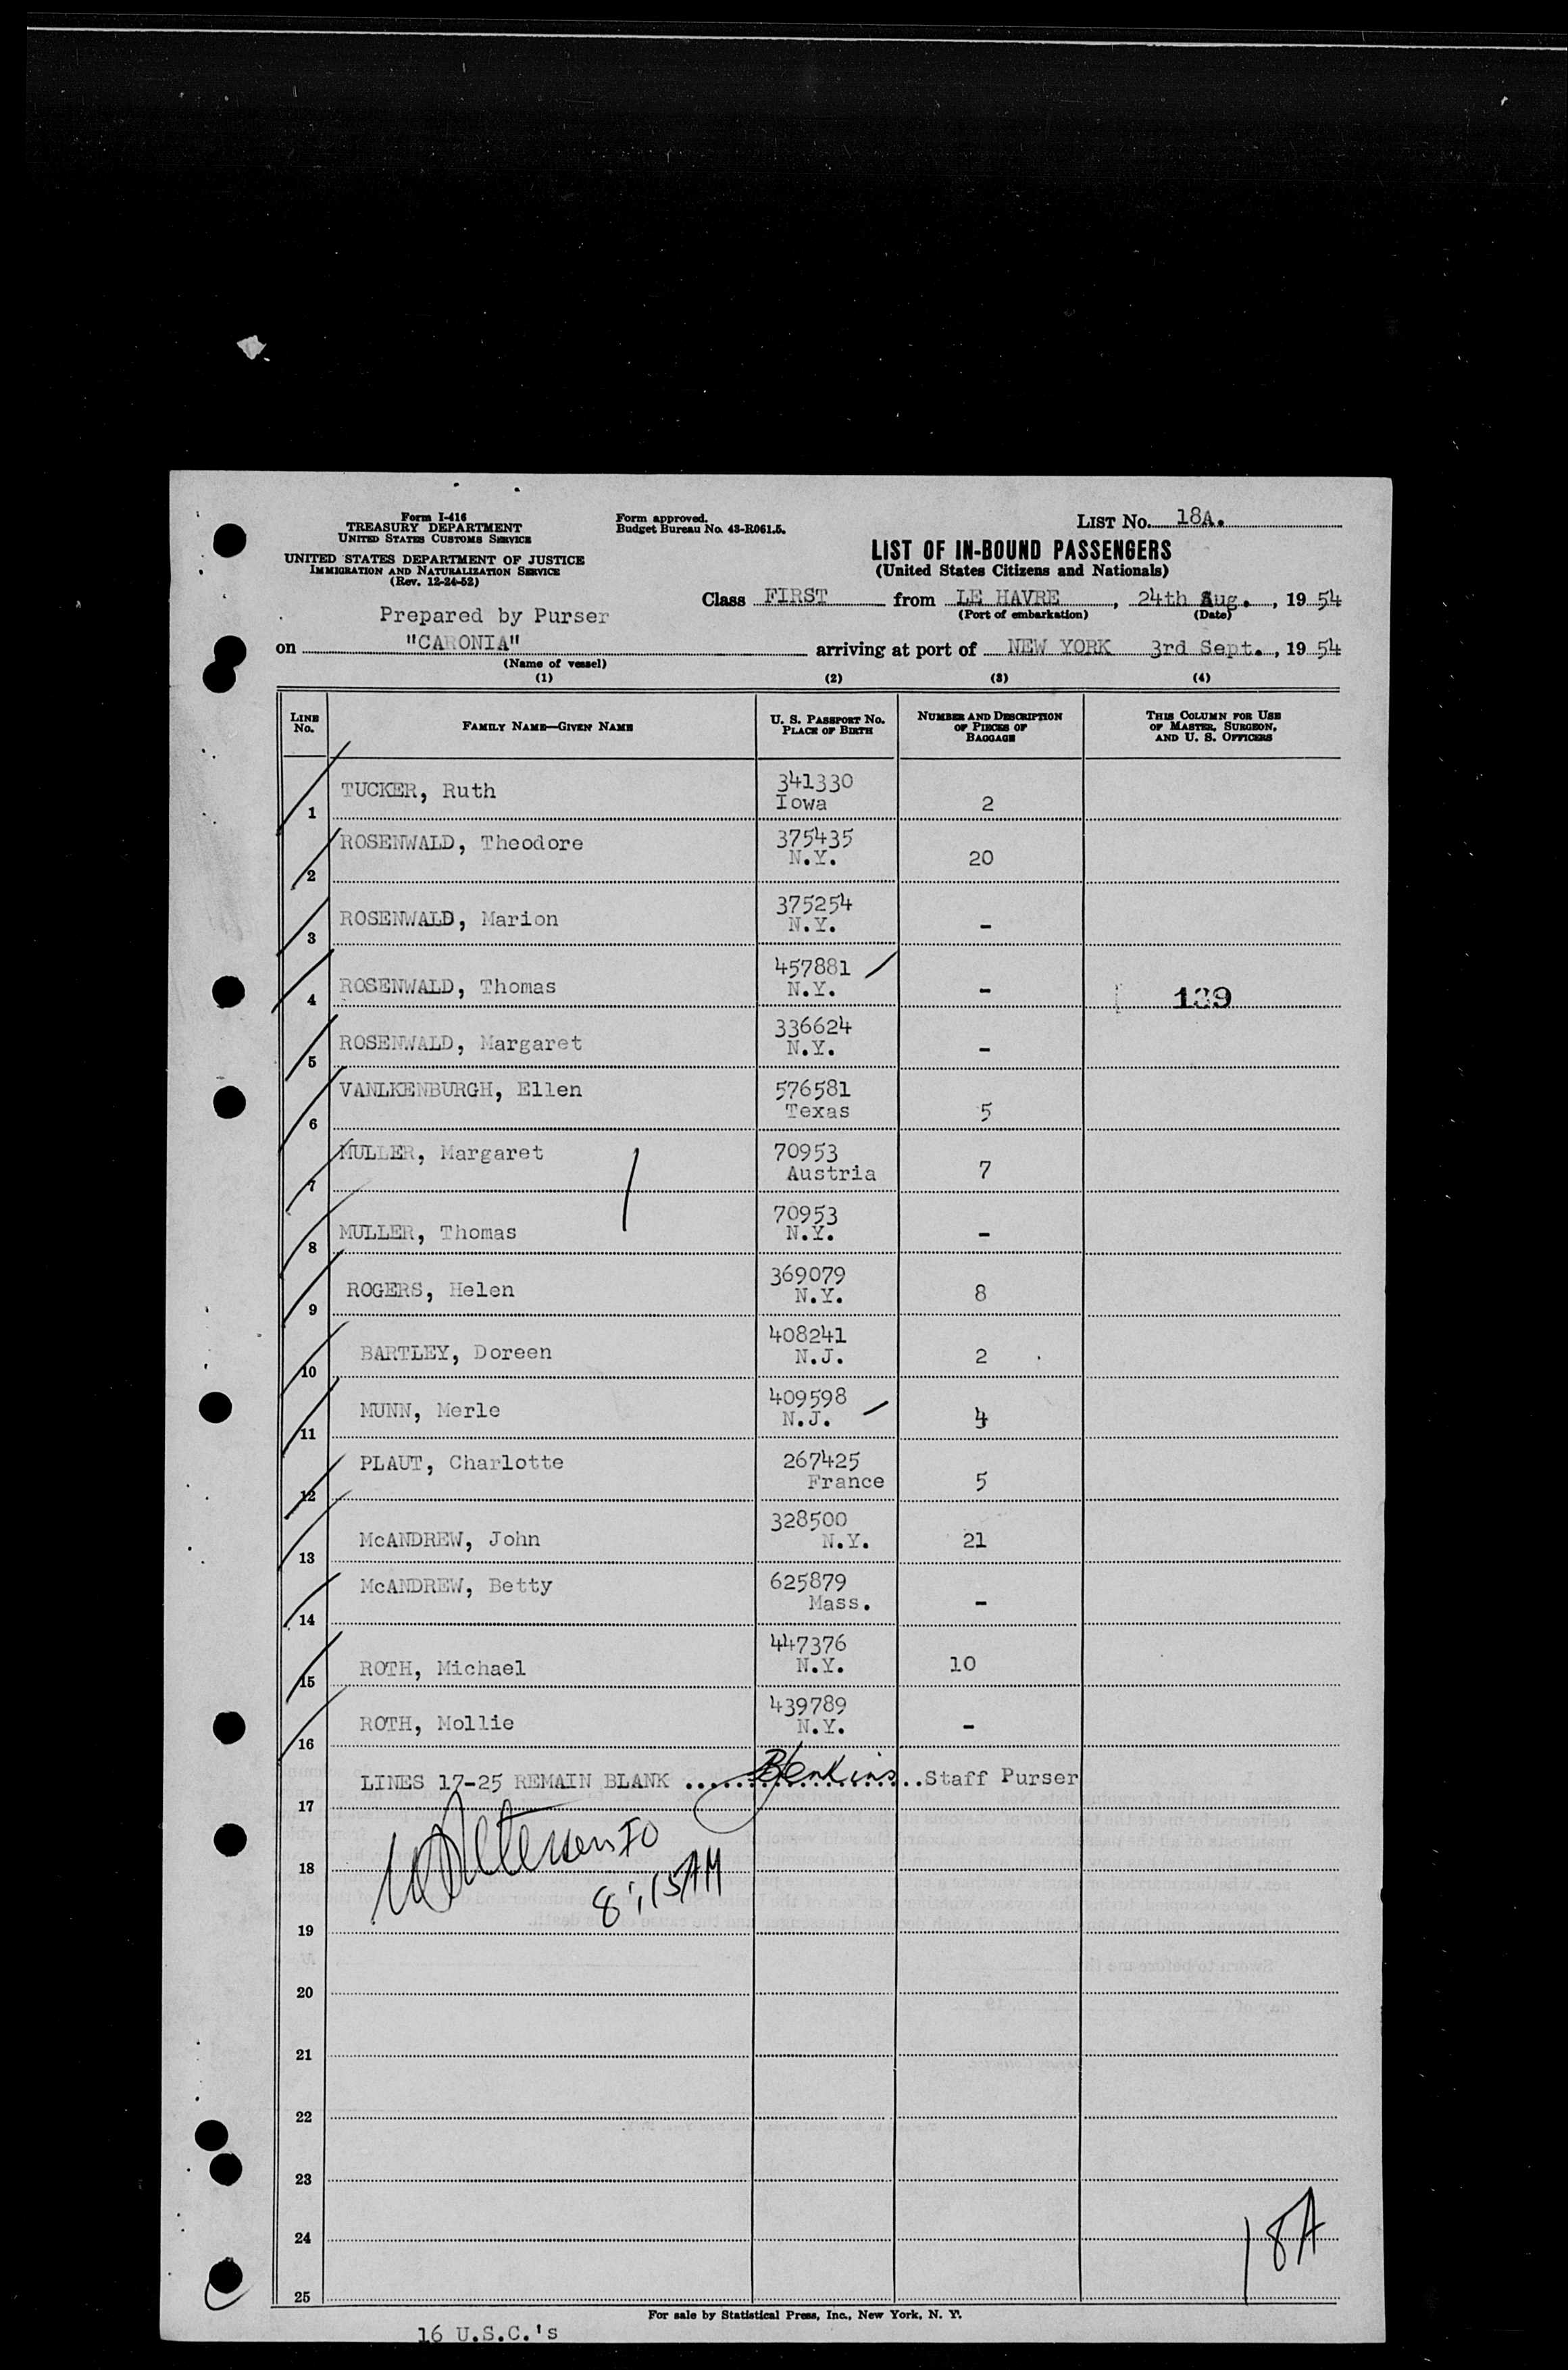 Form I-416
TREASURY DEPARTMENT
UNITED STATES CUSTOMS SERVICE
UNITED STATES DEPARTMENT OF JUSTICE
IMMIGRATION AND NATURALIZATION SERVICE
(Rev. 12-24-52)
Form approved.
Budget Bureau No. 43-R061.5.
LIST No. 18A.
LIST OF IN-BOUND PASSENGERS
(United States Citizens and Nationals)
Class FIRST from LE HAVRE, 24th Aug., 1954
(Port of embarkation) (Date)
Prepared by Purser
on "CARONIA" arriving at port of NEW YORK 3rd Sept., 1954
(Name of vessel)
(1) (2) (3) (4)
LINE No. FAMILY NAME—GIVEN NAME U. S. PASSPORT No. PLACE OF BIRTH NUMBER AND DESCRIPTION OF PIECES OF BAGGAGE THIS COLUMN FOR USE OF MASTER, SURGEON, AND U. S. OFFICERS
1 TUCKER, Ruth 341330 Iowa 2
2 ROSENWALD, Theodore 375435 N.Y. 20
3 ROSENWALD, Marion 375254 N.Y. -
4 ROSENWALD, Thomas 457881 N.Y. - 139
5 ROSENWALD, Margaret 336624 N.Y. -
6 VANLKENBURGH, Ellen 576581 Texas 5
7 MULLER, Margaret 70953 Austria 7
8 MULLER, Thomas 70953 N.Y. -
9 ROGERS, Helen 369079 N.Y. 8
10 BARTLEY, Doreen 408241 N.J. 2
11 MUNN, Merle 409598 N.J. 4
12 PLAUT, Charlotte 267425 France 5
13 McANDREW, John 328500 N.Y. 21
14 McANDREW, Betty 625879 Mass. -
15 ROTH, Michael 447376 N.Y. 10
16 ROTH, Mollie 439789 N.Y. -
LINES 17-25 REMAIN BLANK ..... Jenkins ..... Staff Purser
17
18
8:15AM
19
20
21
22
23
24
18A
25
For sale by Statistical Press, Inc., New York, N. Y.
16 U.S.C.'s